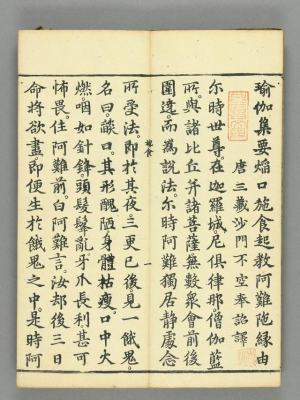 瑜伽集要焰口施食起教阿難陁緣由
唐三藏沙門不空奉詔譯
尓時世尊在迦羅城尼俱律那僧伽藍
所與諸比丘并諸菩薩無數衆會前後
圍遶而為說法尓時阿難獨居靜處念
所受法即於其夜三更已後見一餓鬼
名曰燄口其形醜陋身體枯瘦口中火
燃咽如針鋒頭髮髼亂牙爪長利甚可
怖畏住阿難前白阿難言汝却後三日
命將欲盡即便生於餓鬼之中是時阿
一